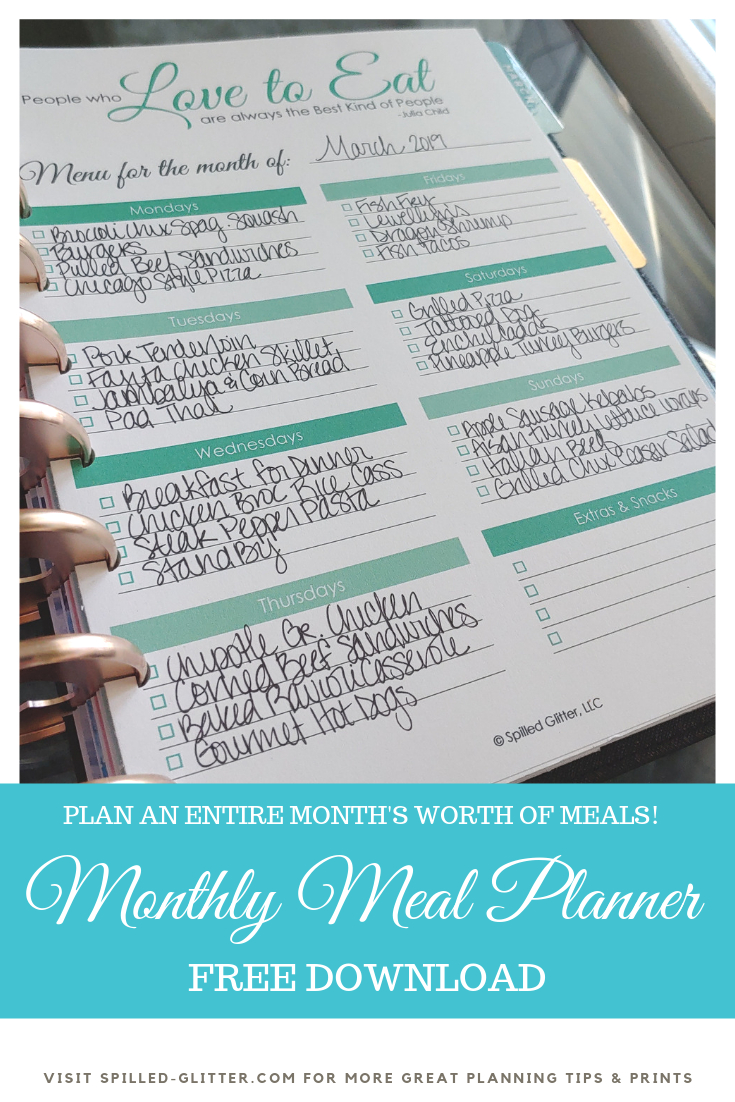 People who Love to Eat
are always the Best Kind of People
-Julia Child
Menu for the month of: March 2019
Mondays
Brocoli Chix Spag. Squash
Burgers
Pulled Beef Sandwiches
Chicago Style Pizza
Tuesdays
Pork Tenderloin
Fajita Chicken Skillet
Jambalaya & Corn Bread
Pad Thai
Wednesdays
Breakfast for Dinner
Chicken Broc Rice Cass
Steak Pepper Pasta
StandBy
Thursdays
Chipotle Gr. Chicken
Corned Beef Sandwiches
Baked Ravioli Casserole
Gourmet Hot Dogs
Fridays
Fish Fry
Lewellyn's
Dragon Shrimp
Fish Tacos
Saturdays
Grilled Pizza
Tattered Dog
Enchiladas
Pineapple Turkey Burgers
Sundays
Apple Sausage Kebabs
Asian Turkey Lettuce Wraps
Italian Beef
Grilled Chix Ceasar Salad
Extras & Snacks
© Spilled Glitter, LLC
PLAN AN ENTIRE MONTH'S WORTH OF MEALS!
Monthly Meal Planner
FREE DOWNLOAD
VISIT SPILLED-GLITTER.COM FOR MORE GREAT PLANNING TIPS & PRINTS